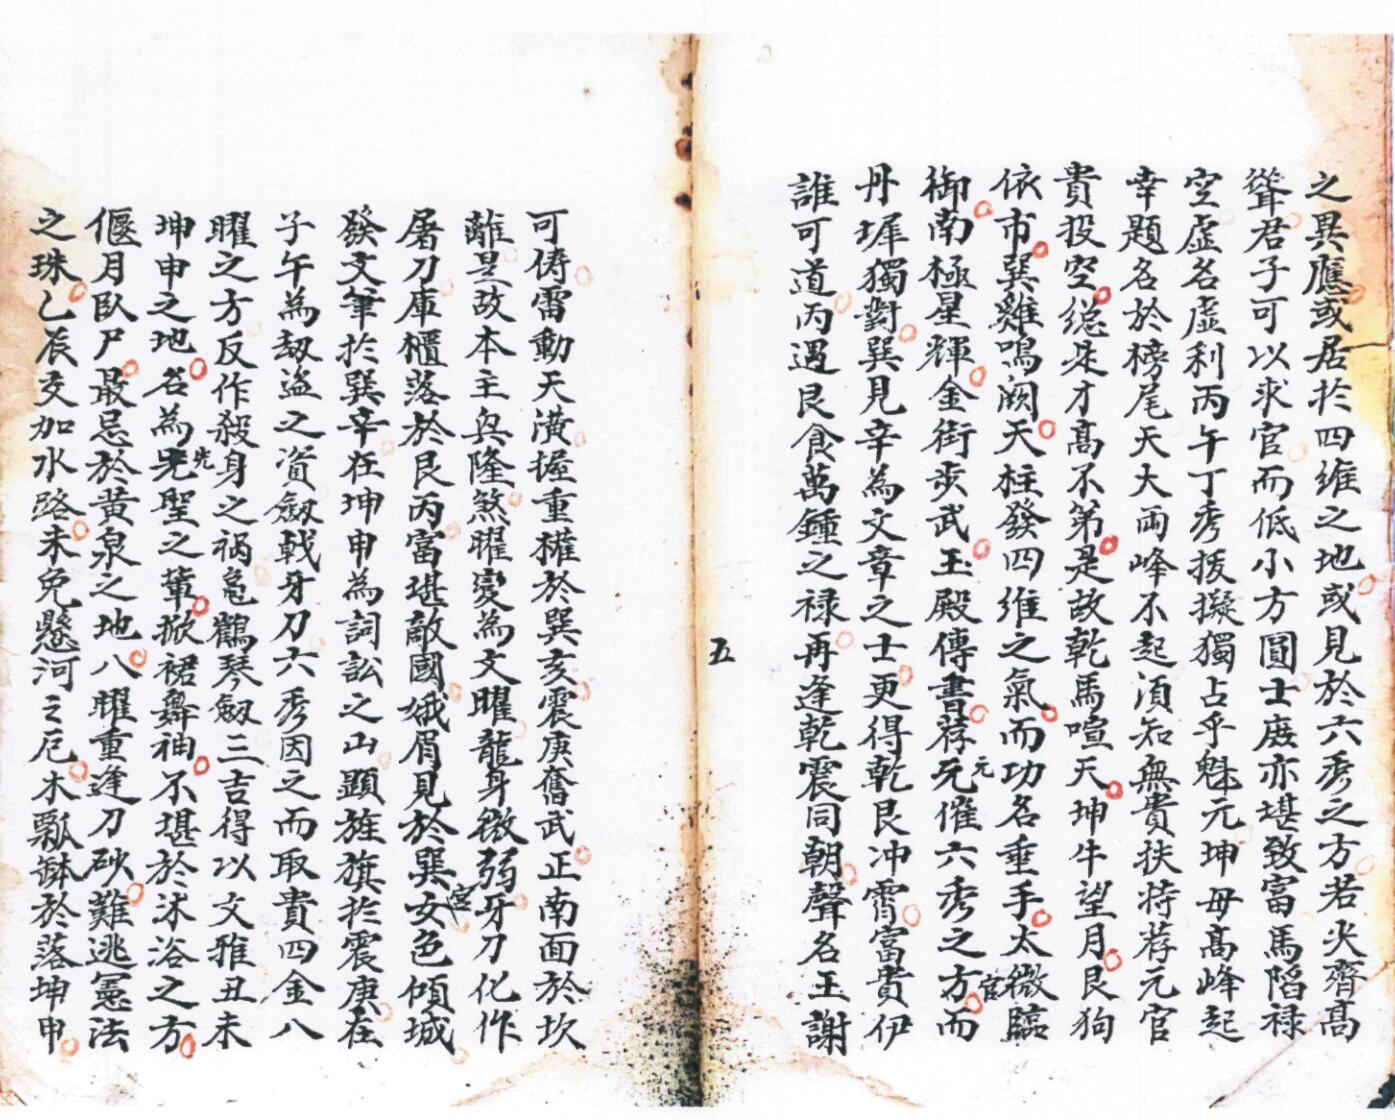 之異應或居於四維之地或見於六秀之方若尖齊高
聳君子可以求官而低小方圓士庶亦堪致富馬陷祿
空虛名虛利丙午丁秀拔擬獨占乎魁元坤母高峰起
幸題名於榜尾天大兩峰不起須知無貴扶持荐元官
貴投空縂是才高不第是故乾馬喧天坤牛望月艮狗
依市巽雞鳴闕天柱發四維之氣而功名垂手太微臨
官
御南極星輝金街步武玉殿傳書荐元催六秀之方而
元
丹墀獨對巽見辛為文章之士更得乾艮冲霄富貴伊
誰可道丙遇艮食萬鍾之祿再逢乾震同朝聲名王謝
五
可儔雷動天潢握重權於巽亥震庚奮武正南面於坎
離是故本主興隆煞曜變為文曜龍身微弱牙刀化作
屠刀庫櫃落於艮丙富堪敵國娥眉見於巽女色傾城
宮
發文筆於巽辛在坤申為詞訟之山顯旌旗於震庚在
子午為刼盜之資劔戟牙刀六秀因之而取貴四金八
曜之方反作殺身之禍龜鶴琴劔三吉得以文雅丑未
坤申之地名為先聖之輩掀裙舞袖不堪於沐浴之方
先
偃月臥尸最忌於黃泉之地八曜重逢刀砂難逃憲法
之珠乙辰交加水路未免懸河之厄木瓢缽於落坤申